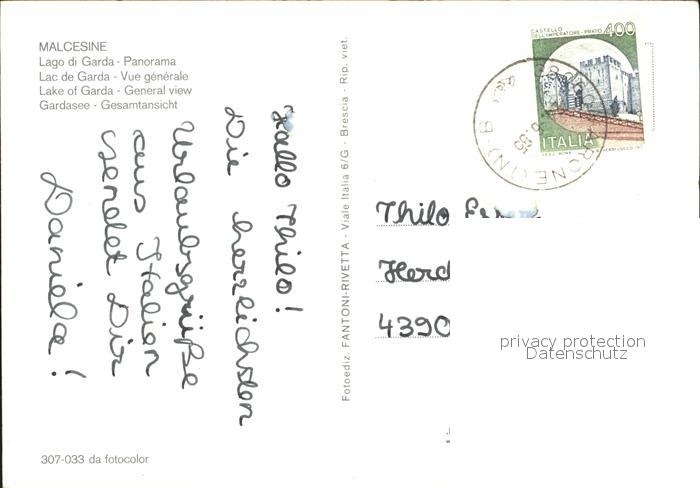 MALCESINE
Lago di Garda - Panorama
Lac de Garda - Vue générale
Lake of Garda - General view
Gardasee - Gesamtansicht
Hallo Thilo!
Die herzlichsten
Urlaubsgrüße
aus Italien
sendet Dir
Daniela!
307-033 da fotocolor
Fotoediz. FANTONI-RIVETTA - Viale Italia 6/G - Brescia - Rip. viet.
CASTELLO
DELL'IMPERATORE - PRATO 400
ITALIA
Thilo
Herd
4390
privacy protection
Datenschutz